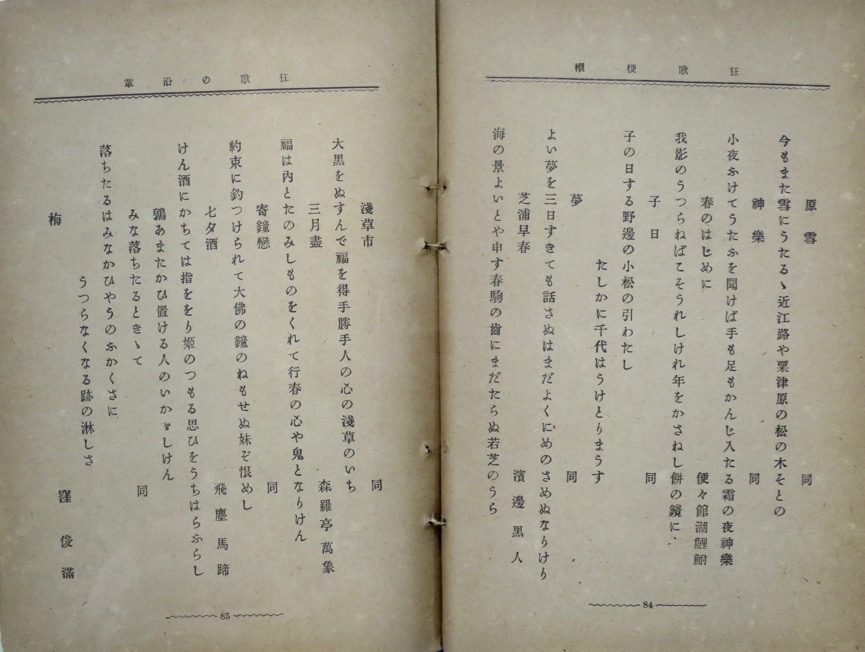 狂歌梗概
原雪 同
今もまた雪にうたるゝ近江路や粟津原の松の木そとの
神樂 同
小夜ふけてうたふを聞けば手も足もかんじ入たる霜の夜神樂
春のはじめに 便々館湖鯉鮒
我影のうつらねばこそうれしけれ年をかさねし餅の鏡に
子日 同
子の日する野邊の小松の引わたし
たしかに千代はうけとりまうす
夢 同
よい夢を三日すきても話さぬはまだよくにめのさめぬなりけり
芝浦早春 濱邊黒人
海の景よいとや申す春駒の齒にまだたらぬ若芝のうら
84
狂歌の沿革
淺草市 同
大黒をぬすんで福を得手勝手人の心の淺草のいち
三月盡 森羅亭萬象
福は内とたのみしものをくれて行春の心や鬼となりけん
寄鐘戀 同
約束に釣つけられて大佛の鐘のねもせぬ妹ぞ恨めし
七夕酒 飛塵馬蹄
けん酒にかちては指ををり姫のつもる思ひをうちはらふらし
鶉あまたかひ置ける人のいかゞしけん
みな落ちたるときゝて 同
落ちたるはみなかひやうのふかくさに
うつらなくなる跡の淋しさ
梅 窪俊滿
85